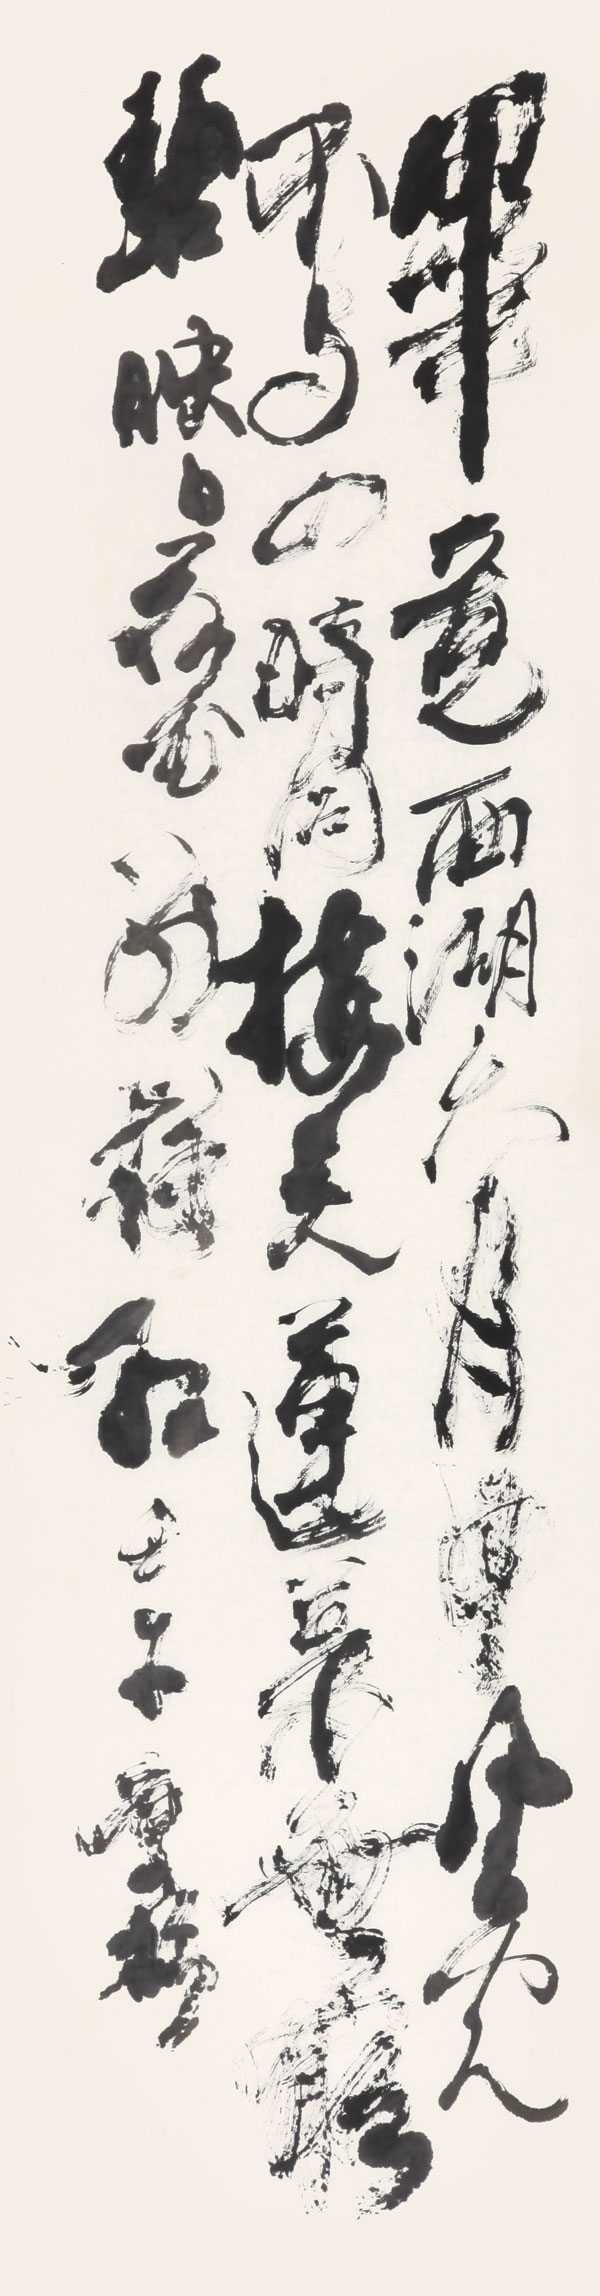 畢竟西湖六月中風光
不與四時同接天蓮葉無窮
碧映日荷花別樣紅壬午